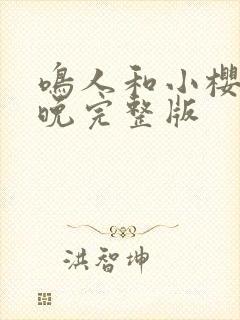 鳴人和小櫻
晚完整版
洪智坤